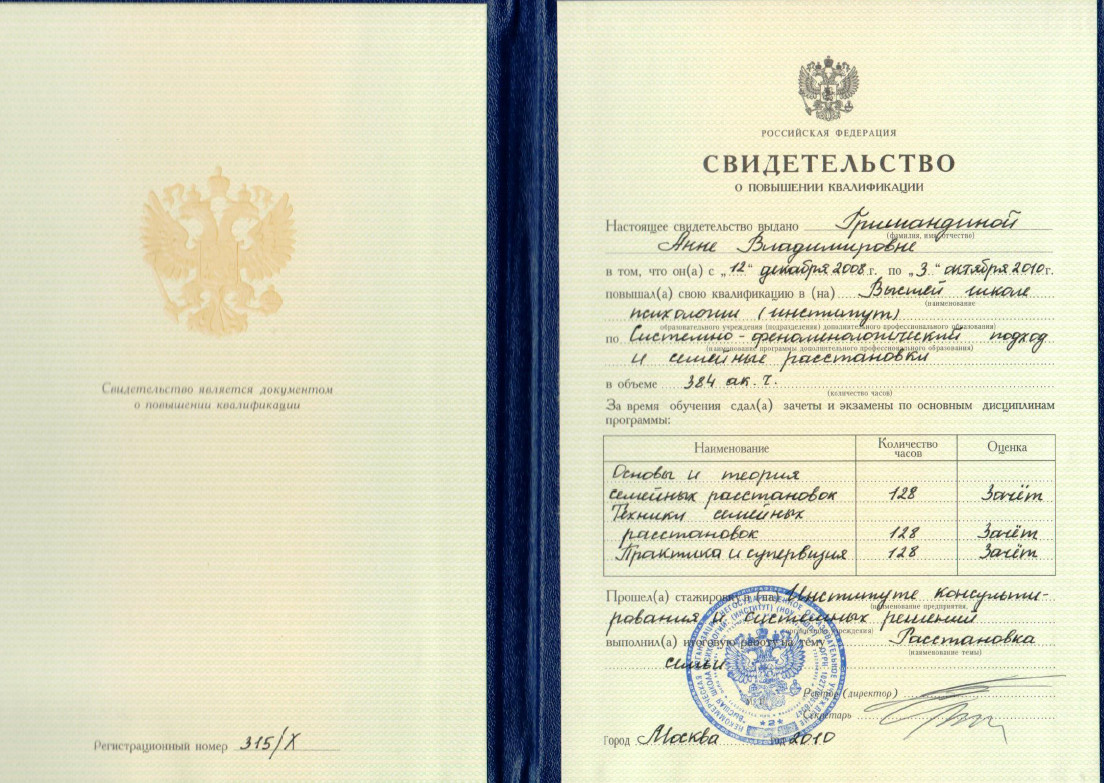 Свидетельство является документом
о повышении квалификации
Регистрационный номер 315/X
РОССИЙСКАЯ ФЕДЕРАЦИЯ
СВИДЕТЕЛЬСТВО
О ПОВЫШЕНИИ КВАЛИФИКАЦИИ
Настоящее свидетельство выдано Гримандиной
(фамилия, имя, отчество)
Анне Владимировне
в том, что он(а) с „12“ декабря 2008 г. по „3“ октября 2010 г.
повышал(а) свою квалификацию в (на) Высшей школе
(наименование
психологии (институт)
образовательного учреждения (подразделения) дополнительного профессионального образования)
по Системно-феноменологический подход
(наименование программы дополнительного профессионального образования)
и семейные расстановки
в объеме 384 ак. ч.
(количество часов)
За время обучения сдал(а) зачеты и экзамены по основным дисциплинам
программы:
Наименование Количество часов Оценка
Основы и теория
семейных расстановок 128 Зачёт
Техники семейных
расстановок 128 Зачёт
Практика и супервизия 128 Зачёт
Прошел(а) стажировку в (на) Институте консульти-
(наименование предприятия,
рования и системных решений
учреждения)
выполнил(а) итоговую работу на тему Расстановка
(наименование темы)
семьи
Ректор (директор)
Секретарь
Город Москва год 2010